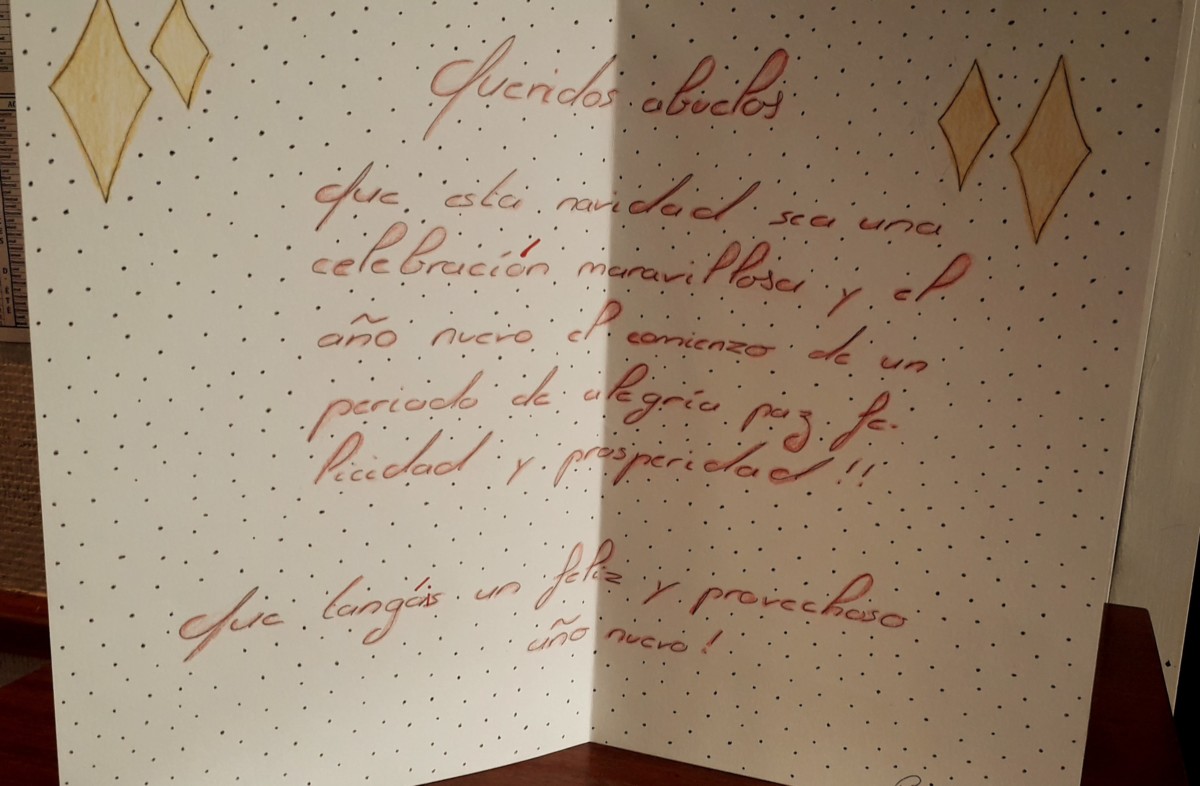 Queridos abuelos
Que esta navidad sea una
celebración maravillosa y el
año nuevo el comienzo de un
periodo de alegría paz fe-
licidad y prosperidad!!
Que tangáis un feliz y provechoso
año nuevo!